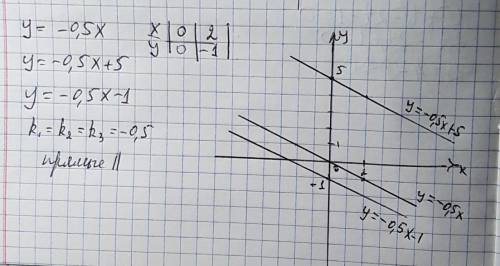 y = -0,5x
x 0 2
y 0 -1
y = -0,5x+5
y = -0,5x-1
k₁ = k₂ = k₃ = -0,5
прямые ||
y
5
y=-0,5x+5
1
x
0
2
-1
y=-0,5x
y=-0,5x-1